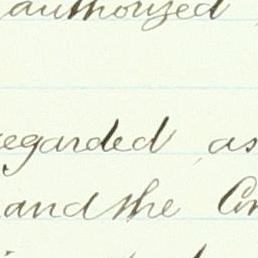 authorized
regarded as
and the